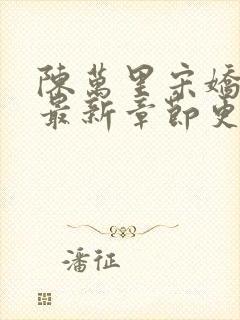 陳萬里宋嬌
最新章節更
潘征